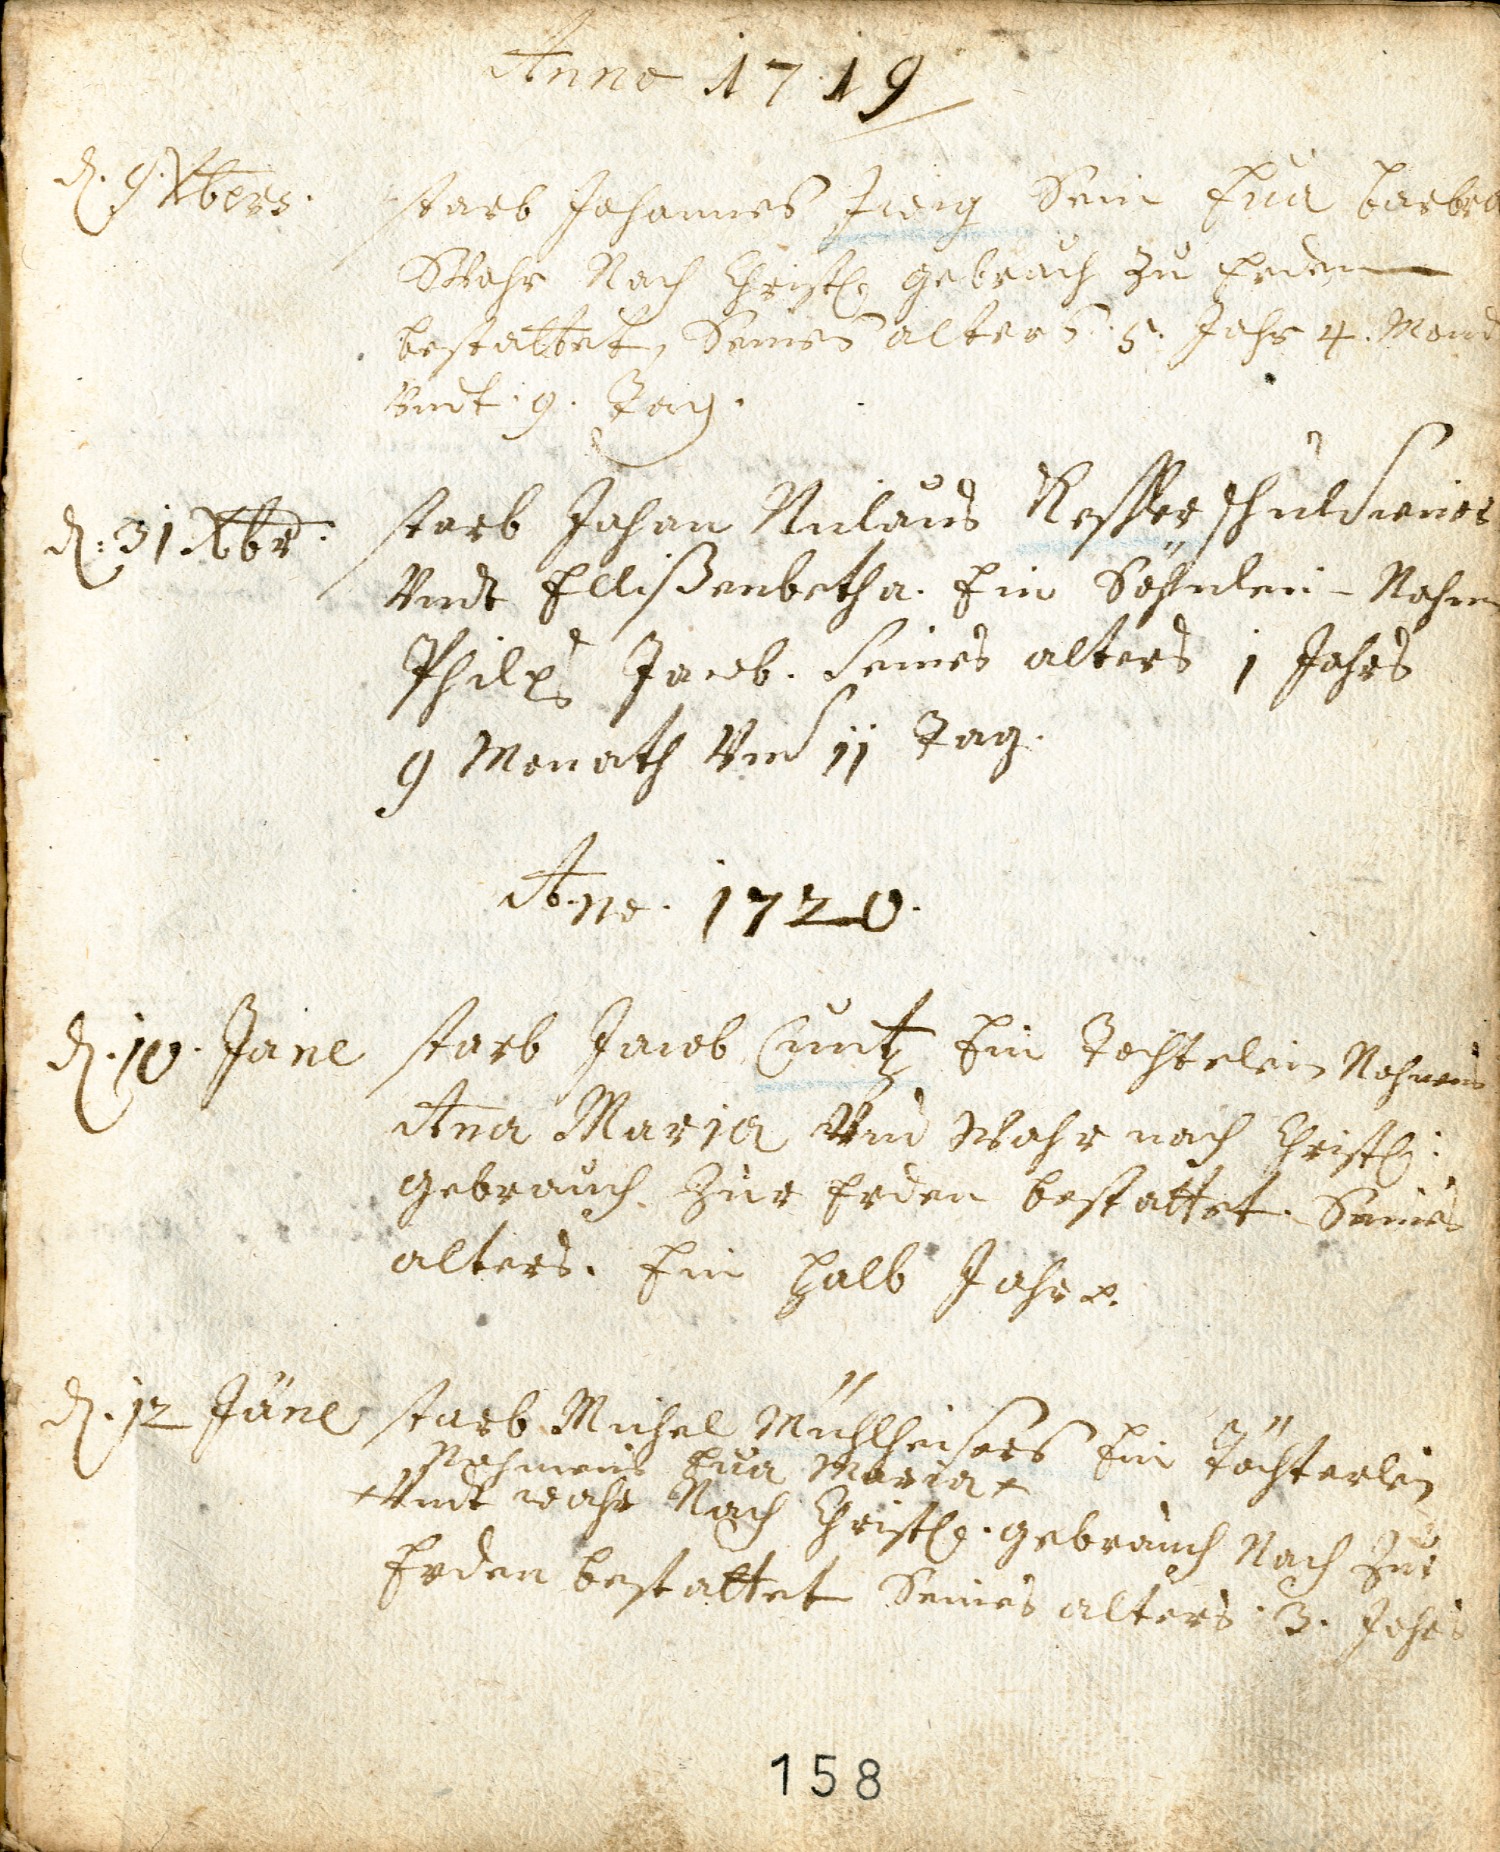 Anno 1719
d. 9. Xbers. starb Johannes Sein Eva barbra
Wahr Nach Christl. gebrauch zu Erden
bestattet, Seines alters 5. Jahr 4. Mond
Vndt 9. Tag.
d. 31 Xbr. starb Johan Niclaus Kesslers
Vndt Ellißenbetha. Ein Söhnlein Nahmens
Philps Jacob. Seines alters 1 Jahrs
9 Monath Vnd 11 Tag.
Ano. 1720.
d. 10. Jane starb Jacob Cuntz Ein Tochterlein Nahmens
Ana Maria Vnd Wahr nach Christl:
gebrauch zur Erden bestattet. Seines
alters. Ein halb Jahr.
d. 12 Jane starb Michel Mühlheisers Ein Töchterlein
Nahmens Eva Maria +
+ Vndt wahr Nach Christl. gebrauch Nach zur
Erden bestattet Seines alters 3. Jahrs
158